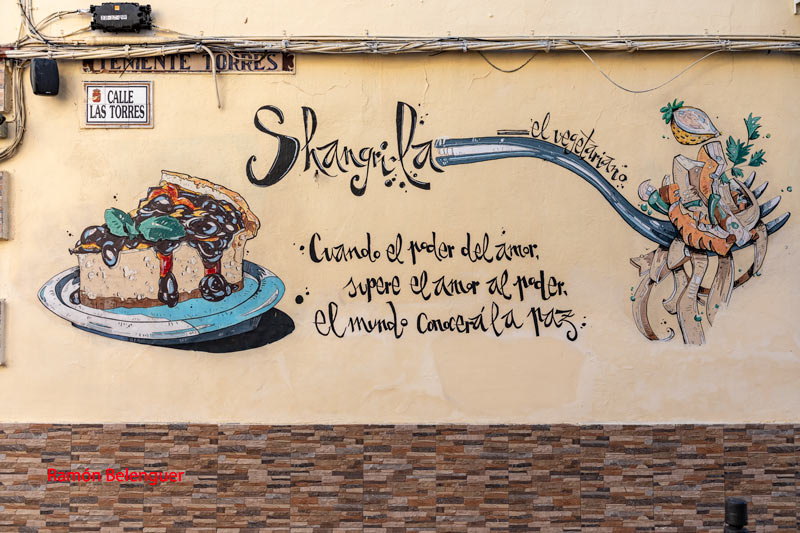 TENIENTE TORRES
CALLE
LAS TORRES
Shangri-la
el vegetariano
Cuando el poder del amor,
supere el amor al poder,
el mundo conocerá la paz
Ramón Belenguer